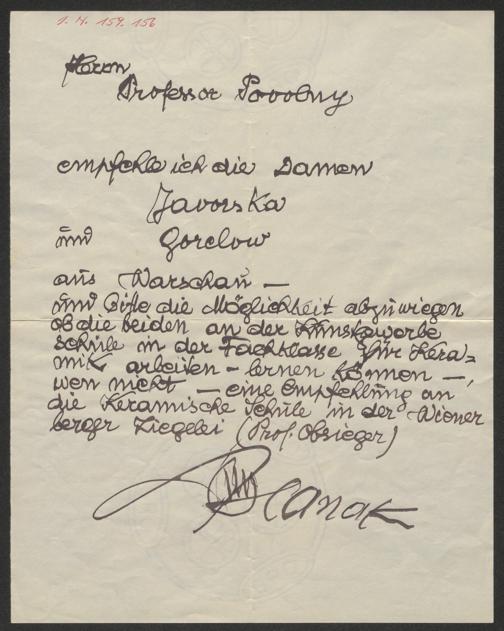 1. N. 159.156
Herrn
Professor Povolny
empfehle ich die Damen
Javorska
und Gorelow
aus Warschau —
und bitte die Möglichkeit abzuwiegen
ob die beiden an der Kunstgewerbe
schule in der Fachklasse für Kera=
mik arbeiten – lernen können —,
wen nicht — eine Empfehlung an
die Keramische Schule in der Wiener
berger Ziegelei (Prof. Obsieger)
Clanak